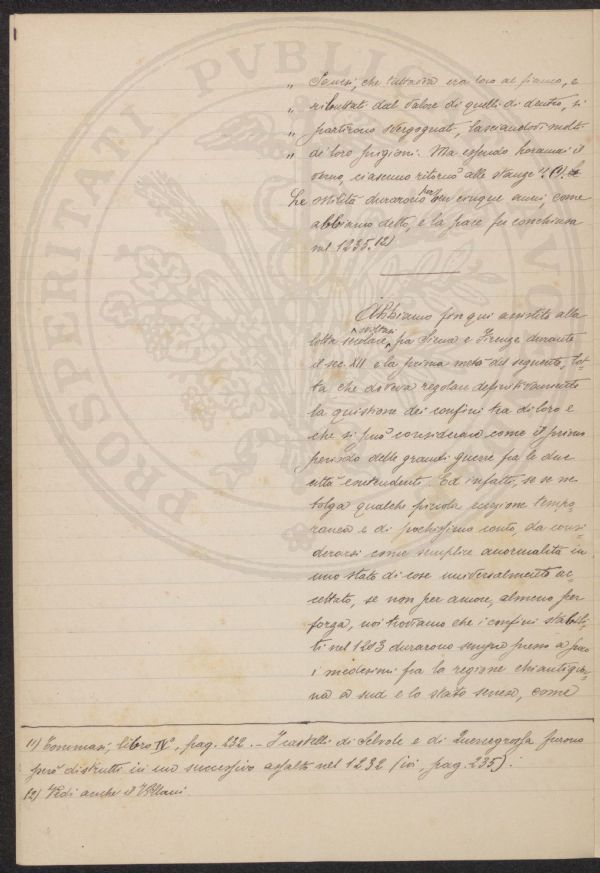 „ Senesi, che tuttavia era loro al fianco, e
„ ributtati dal valore di quelli di dentro, si
„ partirono svergognati, lasciandovi molti
„ de' loro prigioni. Ma essendo horamai il
verno, ciascuno ritornò alle stanze". (1)
Le ostilità durarono ben cinque anni, come
abbiamo detto, e la pace fu conchiusa
nel 1235. (2)
Abbiamo fin qui assistito alla
lotta secolare fra Siena e Firenze durante
il sec. XII e la prima metà del seguente, lot-
ta che doveva regolare definitivamente
la quistione dei confini tra di loro e
che si può considerare come il primo
periodo delle grandi guerre fra le due
città contendenti. Ed infatti, se se ne
tolga qualche piccola eccezione tempo-
ranea e di pochissimo conto, da consi-
derarsi come semplice anormalità in
uno stato di cose universalmente ac-
cettato, se non per amore, almeno per
forza, noi troviamo che i confini stabili-
ti nel 1203 durarono sempre presso a poco
i medesimi fra la regione chiantigia-
na a sud e lo stato senese, come
(1) Tommasi, libro IV°, pag. 232. - I castelli di Selvole e di Querciagrossa furono
però distrutti in un successivo assalto nel 1232 (ivi, pag. 235).
(2) Vedi anche il Villani.
PROSPERITATI PVBLICAE